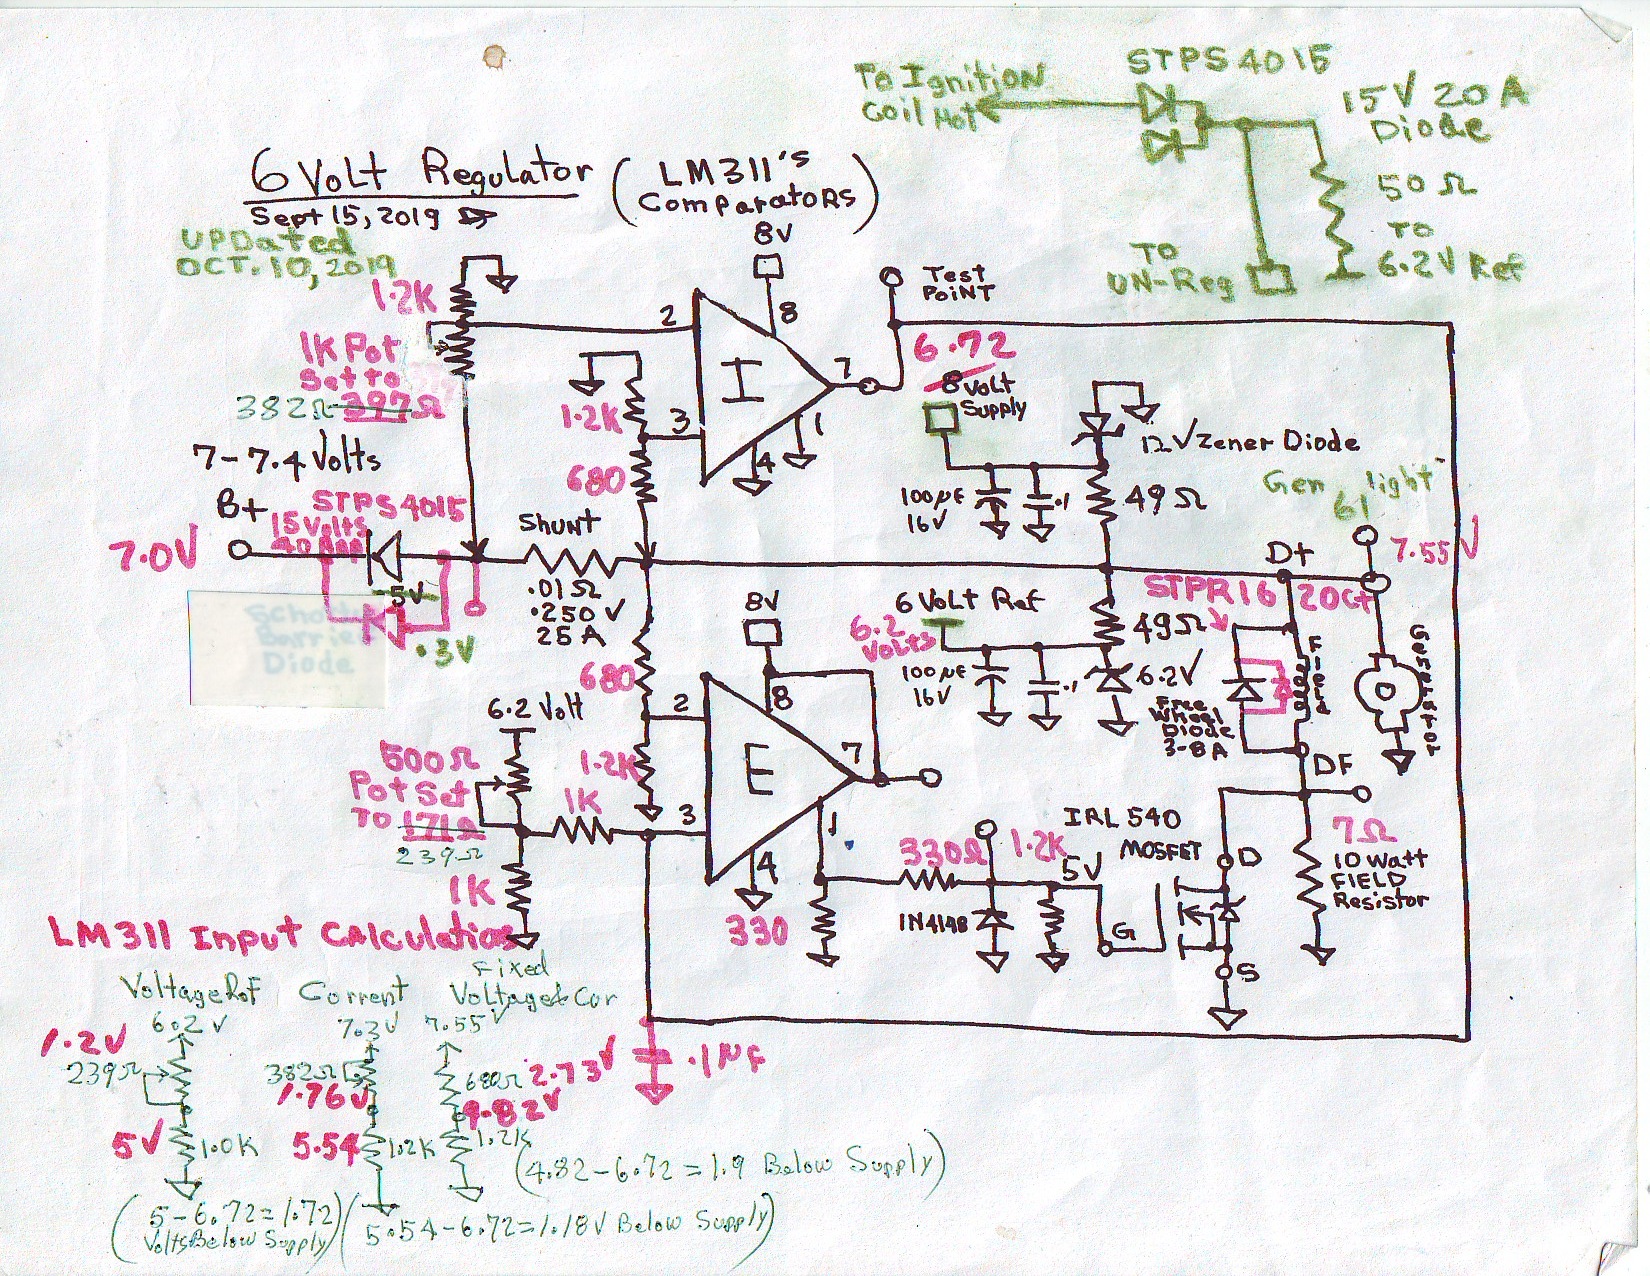 To Ignition
Coil Hot
STPS 4015
15V 20A
Diode
50 Ω
TO
6.2V Ref
TO
UN-Reg
6 Volt Regulator
(LM311's
Comparators)
Sept 15, 2019
UPDated
OCT. 10, 2019
8V
Test
PoiNT
1.2K
2
8
1K Pot
Set to
382Ω 397Ω
I
7
6.72
8 Volt
Supply
1.2K
3
1
4
680
12V Zener Diode
7-7.4 Volts
100µF
16V
.1
49Ω
Gen light
61
B+
STPS 4015
15 Volts
7.0V
Shunt
D+
7.55V
.01Ω
.250 V
25 A
5V
Schottky
Barrier
Diode
.3V
8V
6 Volt Ref
6.2
Volts
STPR16 20Ct
49Ω
100µF
16V
.1
6.2V
Field
Generator
Free
Wheel
Diode
3-8A
680
6.2 Volt
2
8
7
DF
500Ω
Pot Set
TO 171Ω
239Ω
1.2K
1K
E
3
1
4
330Ω
1.2K
5V
IRL 540
MOSFET
D
7Ω
10 Watt
FIELD
Resistor
1K
330
1N4148
G
S
LM311 Input Calculations
Voltage Ref
Current
Fixed
Voltage & Cur
6.2 V
7.3V
7.55V
1.2V
239Ω
382Ω
1.76V
680Ω
2.73V
.1µF
4.82V
5V
1.0K
5.54
1.2K
1.2K
(4.82-6.72=1.9 Below Supply)
(5-6.72=1.72
Volts Below Supply)
(5.54-6.72=1.18V Below Supply)